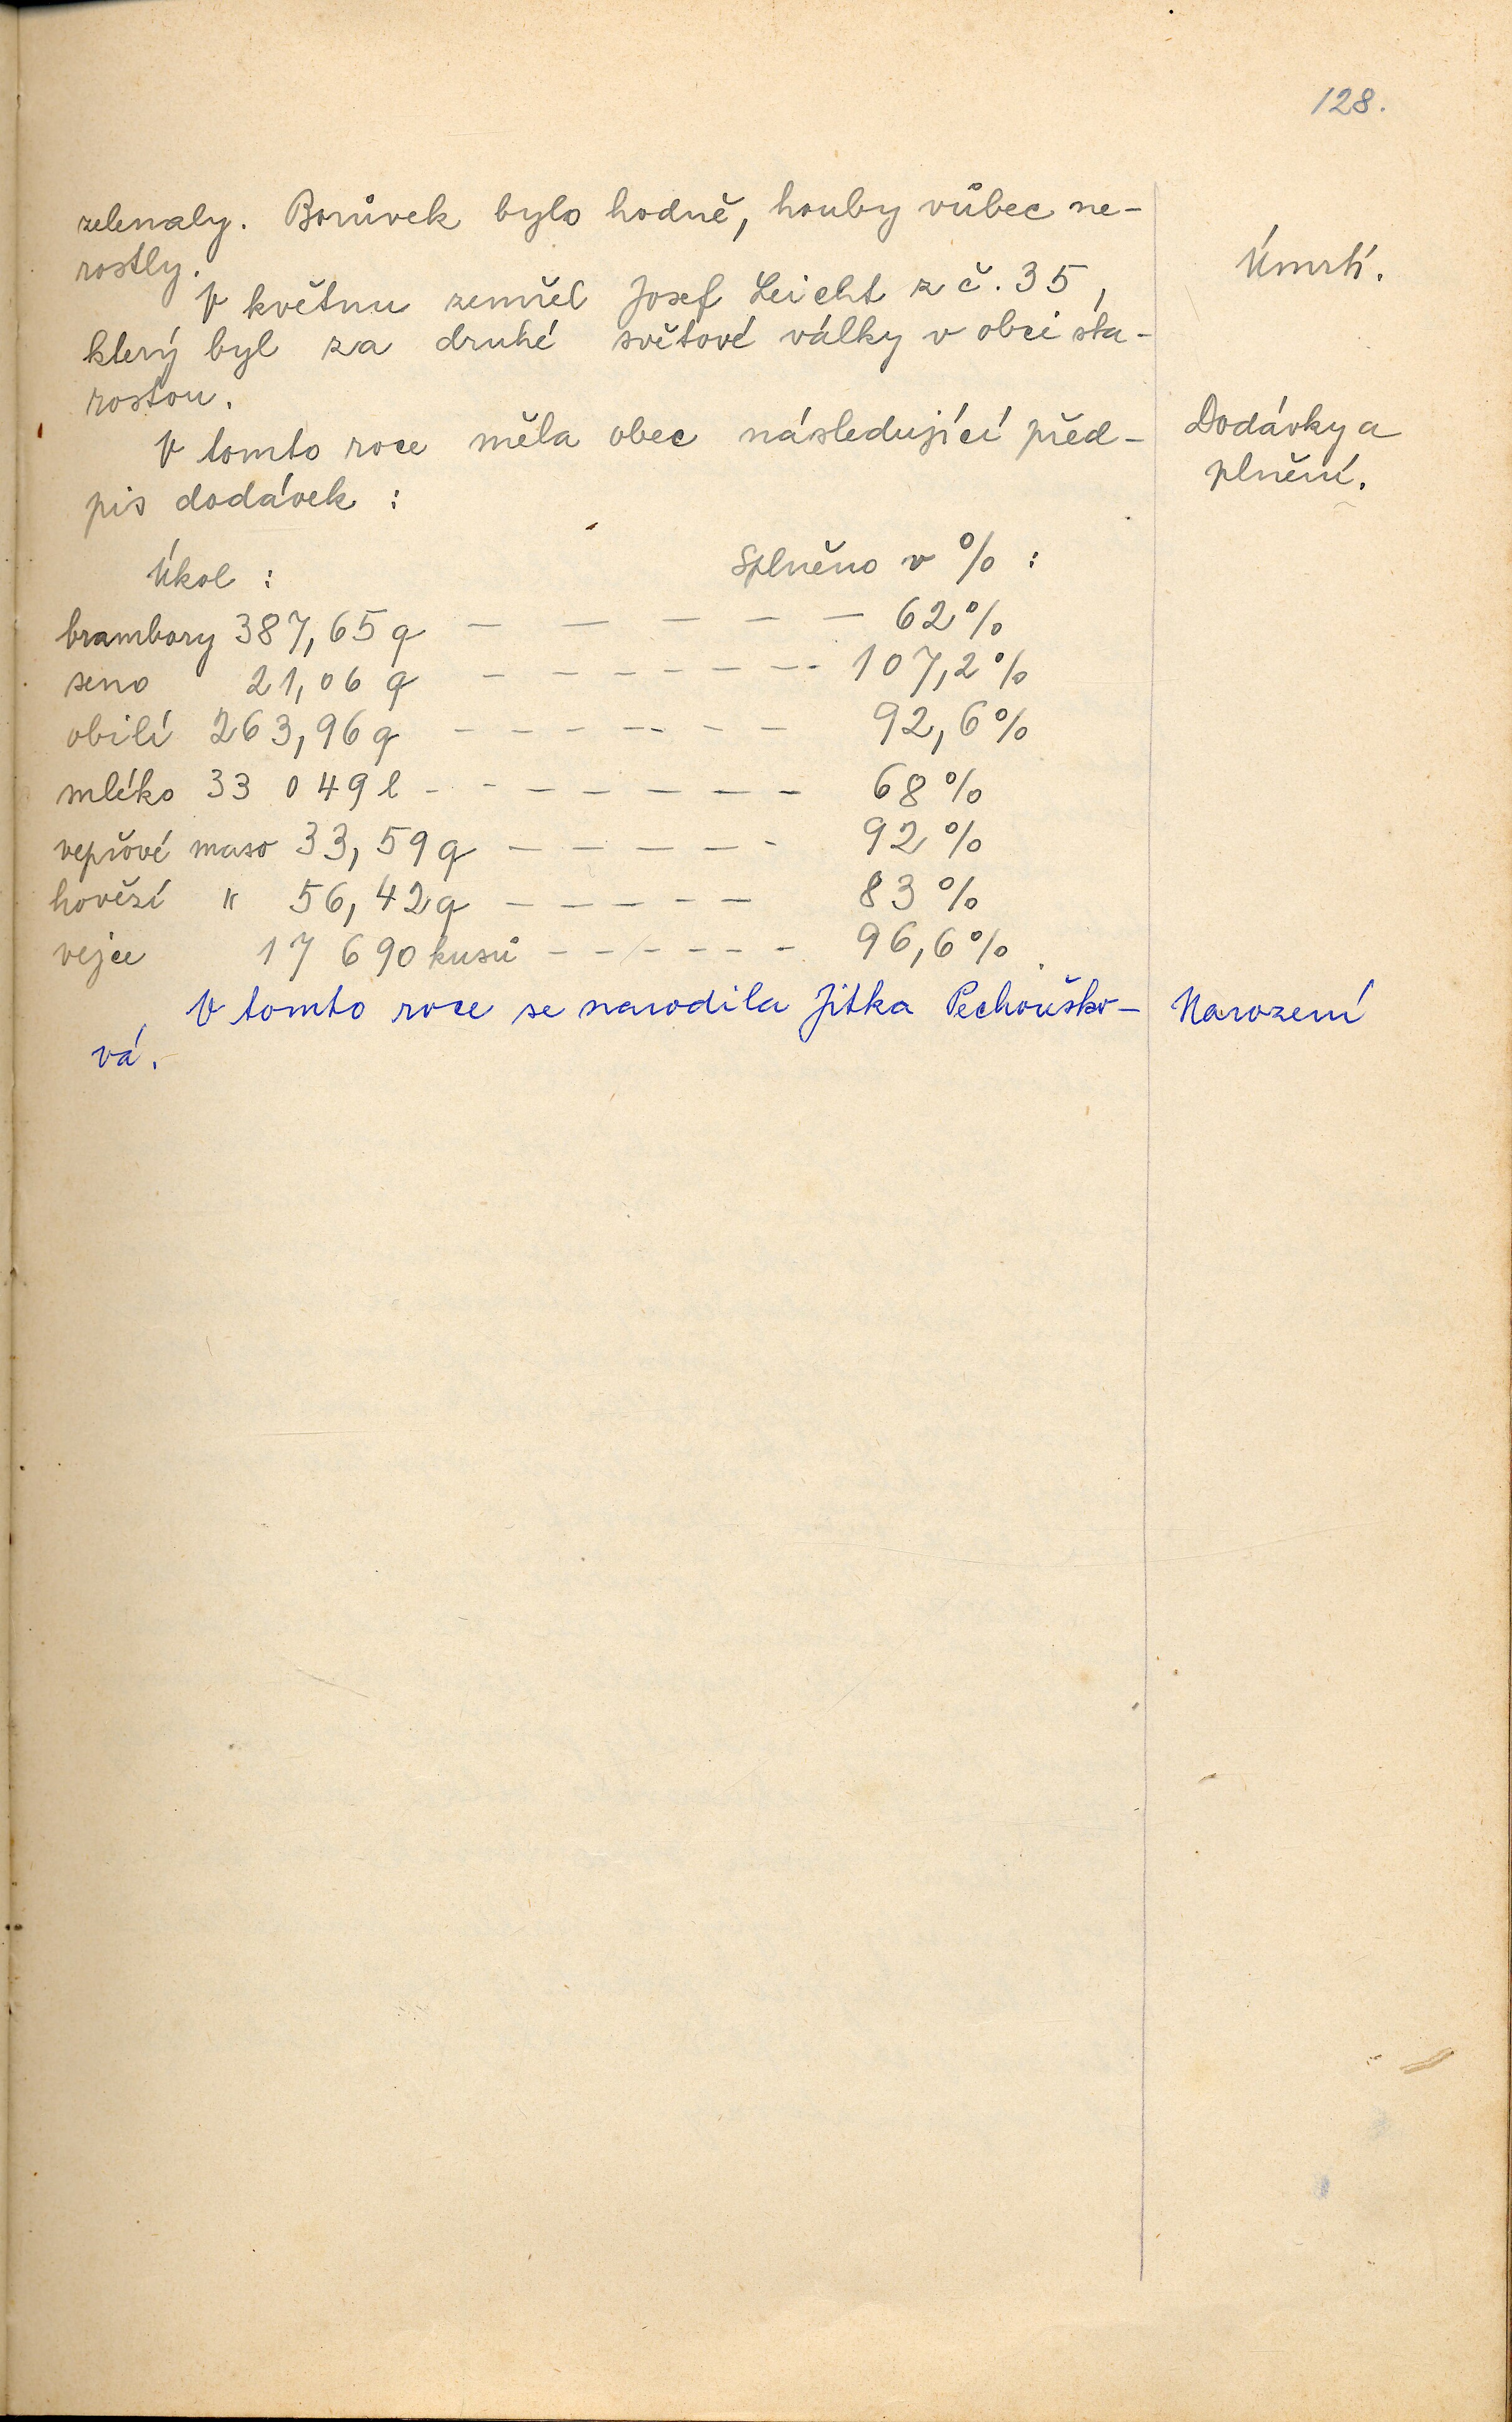 128.
zelenaly. Borůvek bylo hodně, houby vůbec ne-
rostly.
Úmrtí.
V květnu zemřel Josef Leicht z č. 35,
který byl za druhé světové války v obci sta-
rostou.
V tomto roce měla obec následující před-
Dodávky a
plnění.
pis dodávek :
Úkol : Splněno v % :
brambory 387,65 q — — — — — 62%
seno 21,06 q - - - - - - - - 107,2%
obilí 263,96 q - - - - - - - 92,6%
mléko 33 049 l - - - - - - - - 68%
vepřové maso 33,59 q — — — — — - 92%
hovězí " 56,42 q — — — — — 83%
vejce 17 690 kusů - - - - - - 96,6%
V tomto roce se narodila Jitka Pechouško-
Narození
vá.